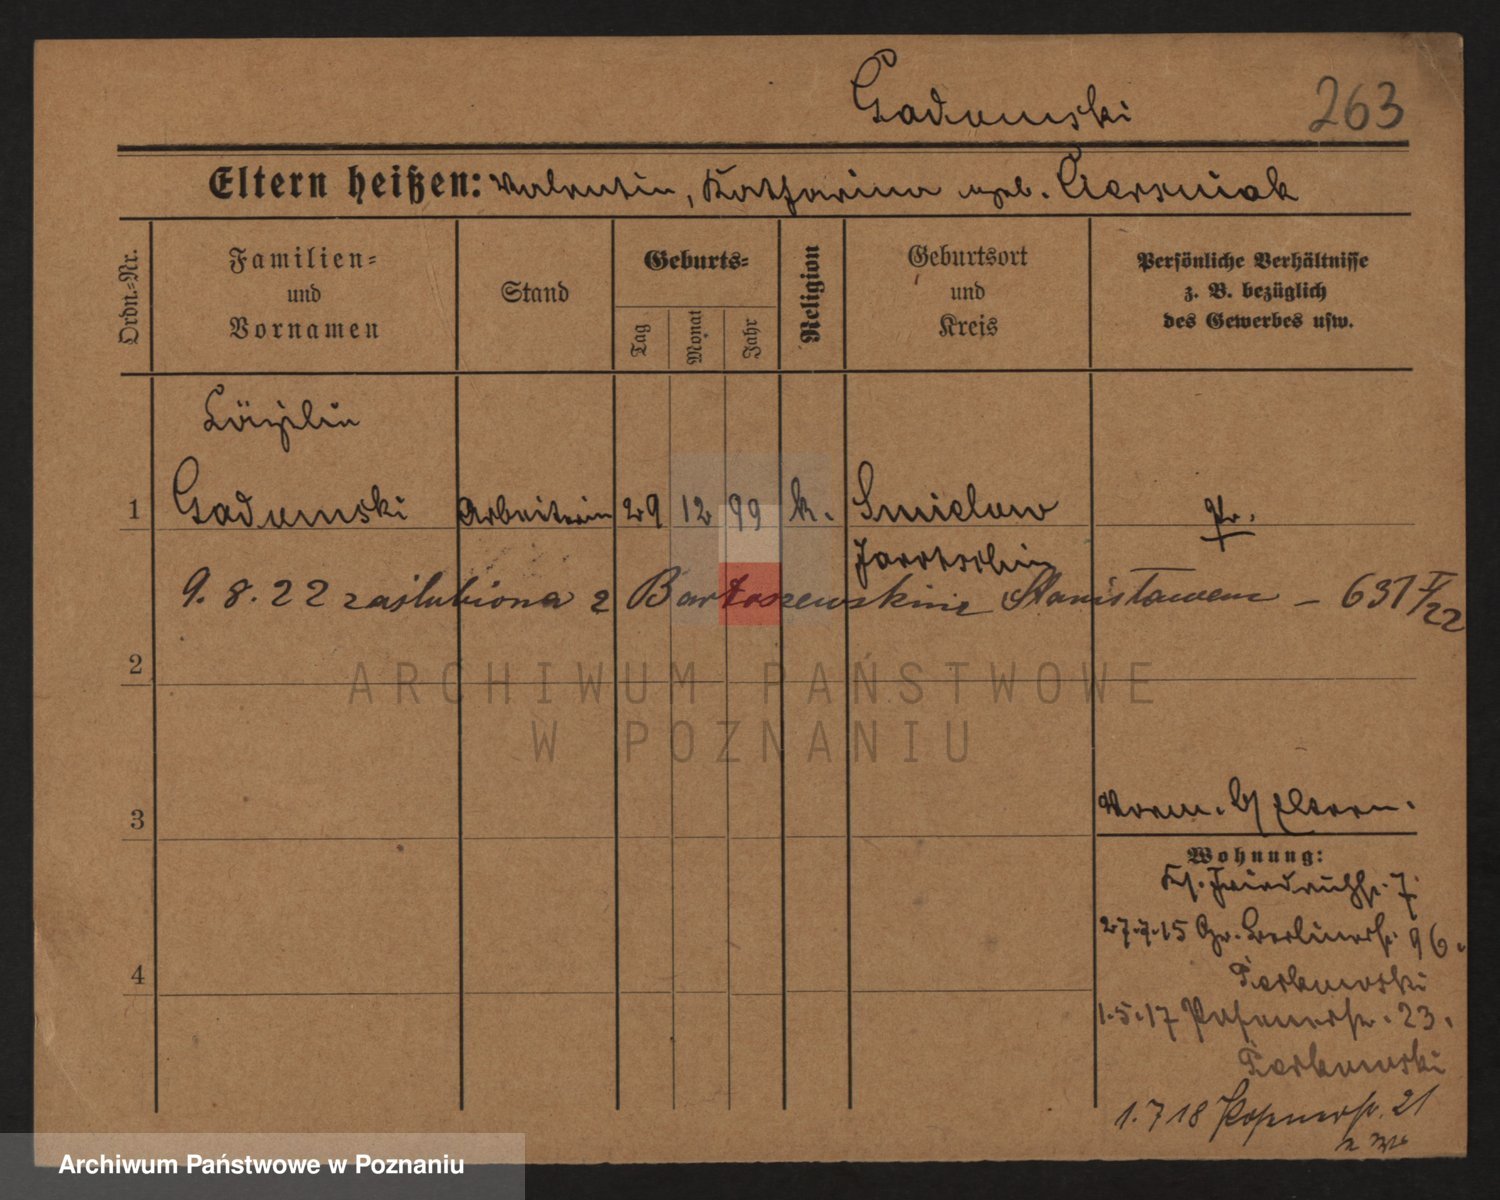 Gadomski 263
Eltern heißen: Valentin, Katharina geb. Cierzniak
Ordn.-Nr.
Familien-
und
Vornamen
Stand
Geburts-
Tag
Monat
Jahr
Religion
Geburtsort
und
Kreis
Persönliche Verhältnisse
z. B. bezüglich
des Gewerbes usw.
1 Gadomski Arbeiterin 29 12 99 k. Smielow Pr.
Jarotschin
9.8.22 zaślubiona z Bartoszewskim Stanisławem – 631 V/22
2
ARCHIWUM PAŃSTWOWE
W POZNANIU
3
Vorm. b/ Eltern.
Wohnung:
7.
27.7.15 Gr. Berlinerstr. 96.
4
1.5.17 Posenerstr. 23.
1.7 18 Posenerstr. 21
Archiwum Państwowe w Poznaniu